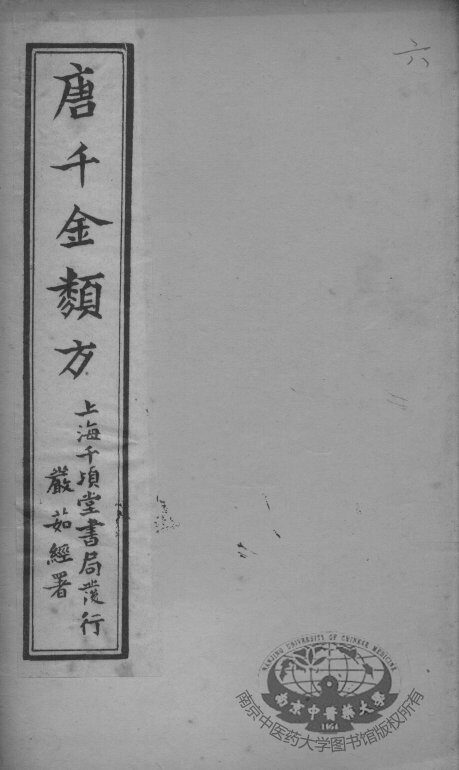 六
唐千金類方
上海千頃堂書局發行
嚴茹經署
NANJING UNIVERSITY OF CHINESE MEDICINE
南京中醫藥大學
1954
南京中医药大学图书馆版权所有